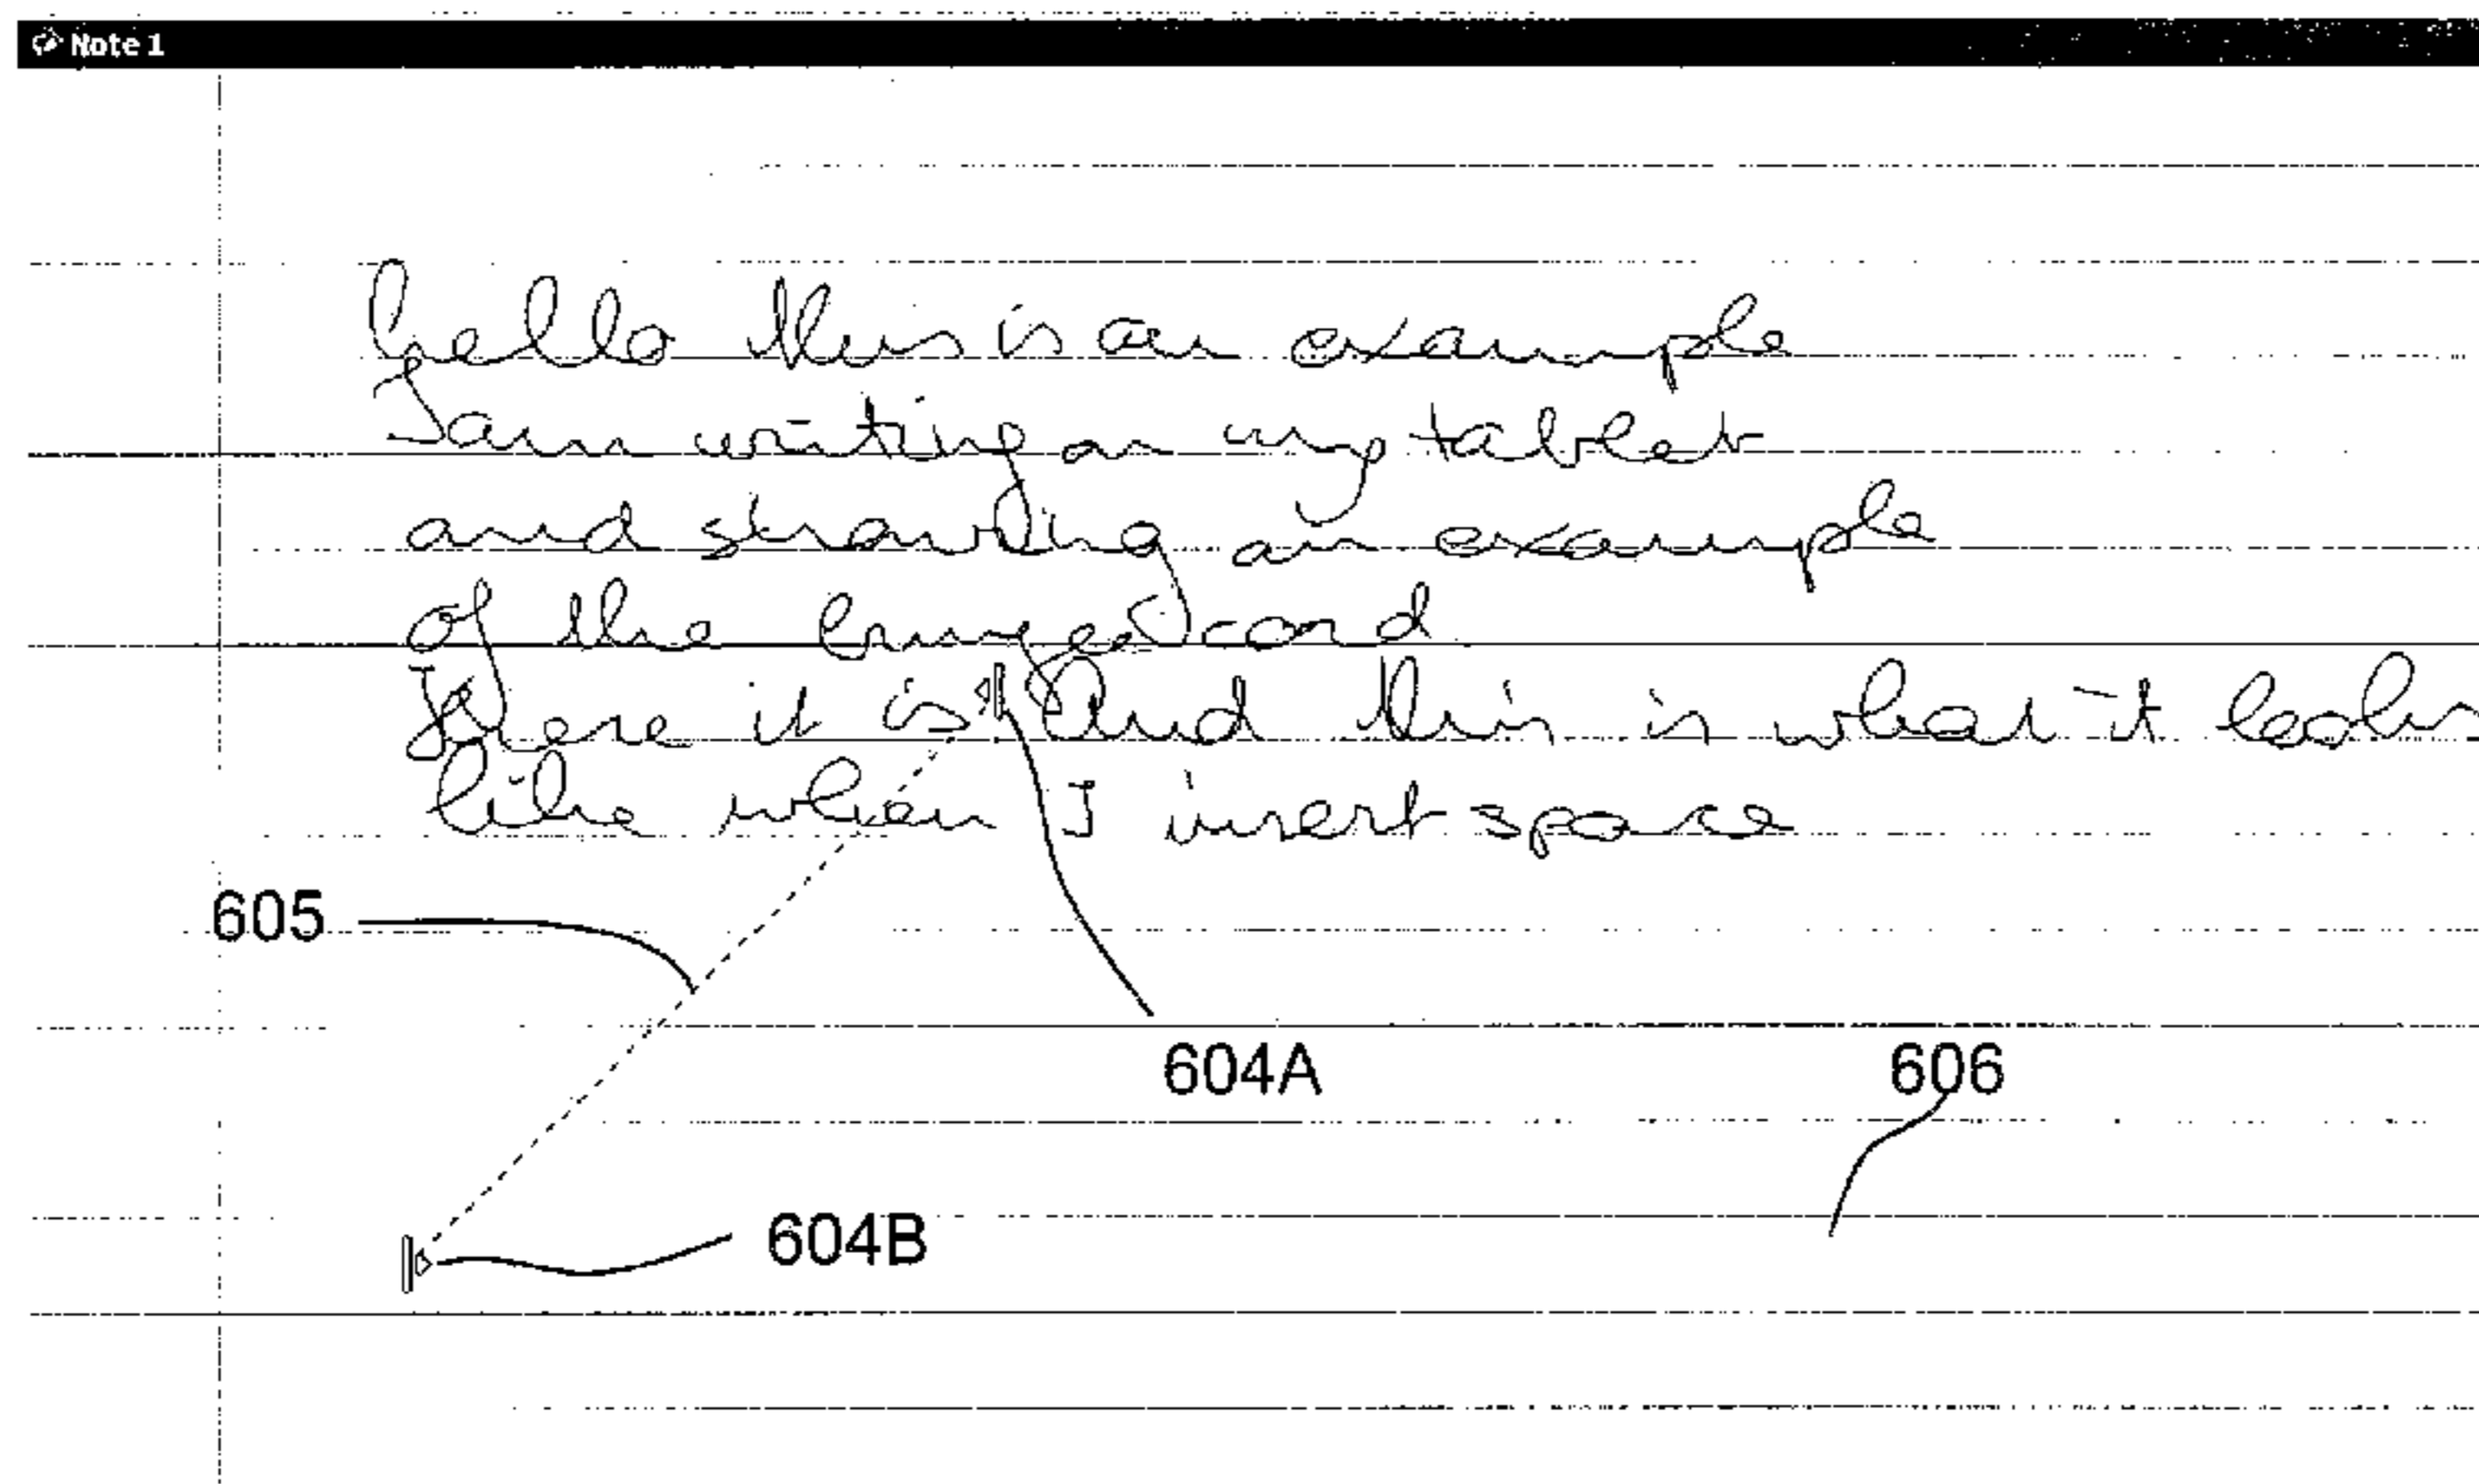 Note 1
hello this is an example
I am writing on my tablet
and showing an example
of the card
Here it is And this is what it looks
like when I insert space
605
604A
606
604B